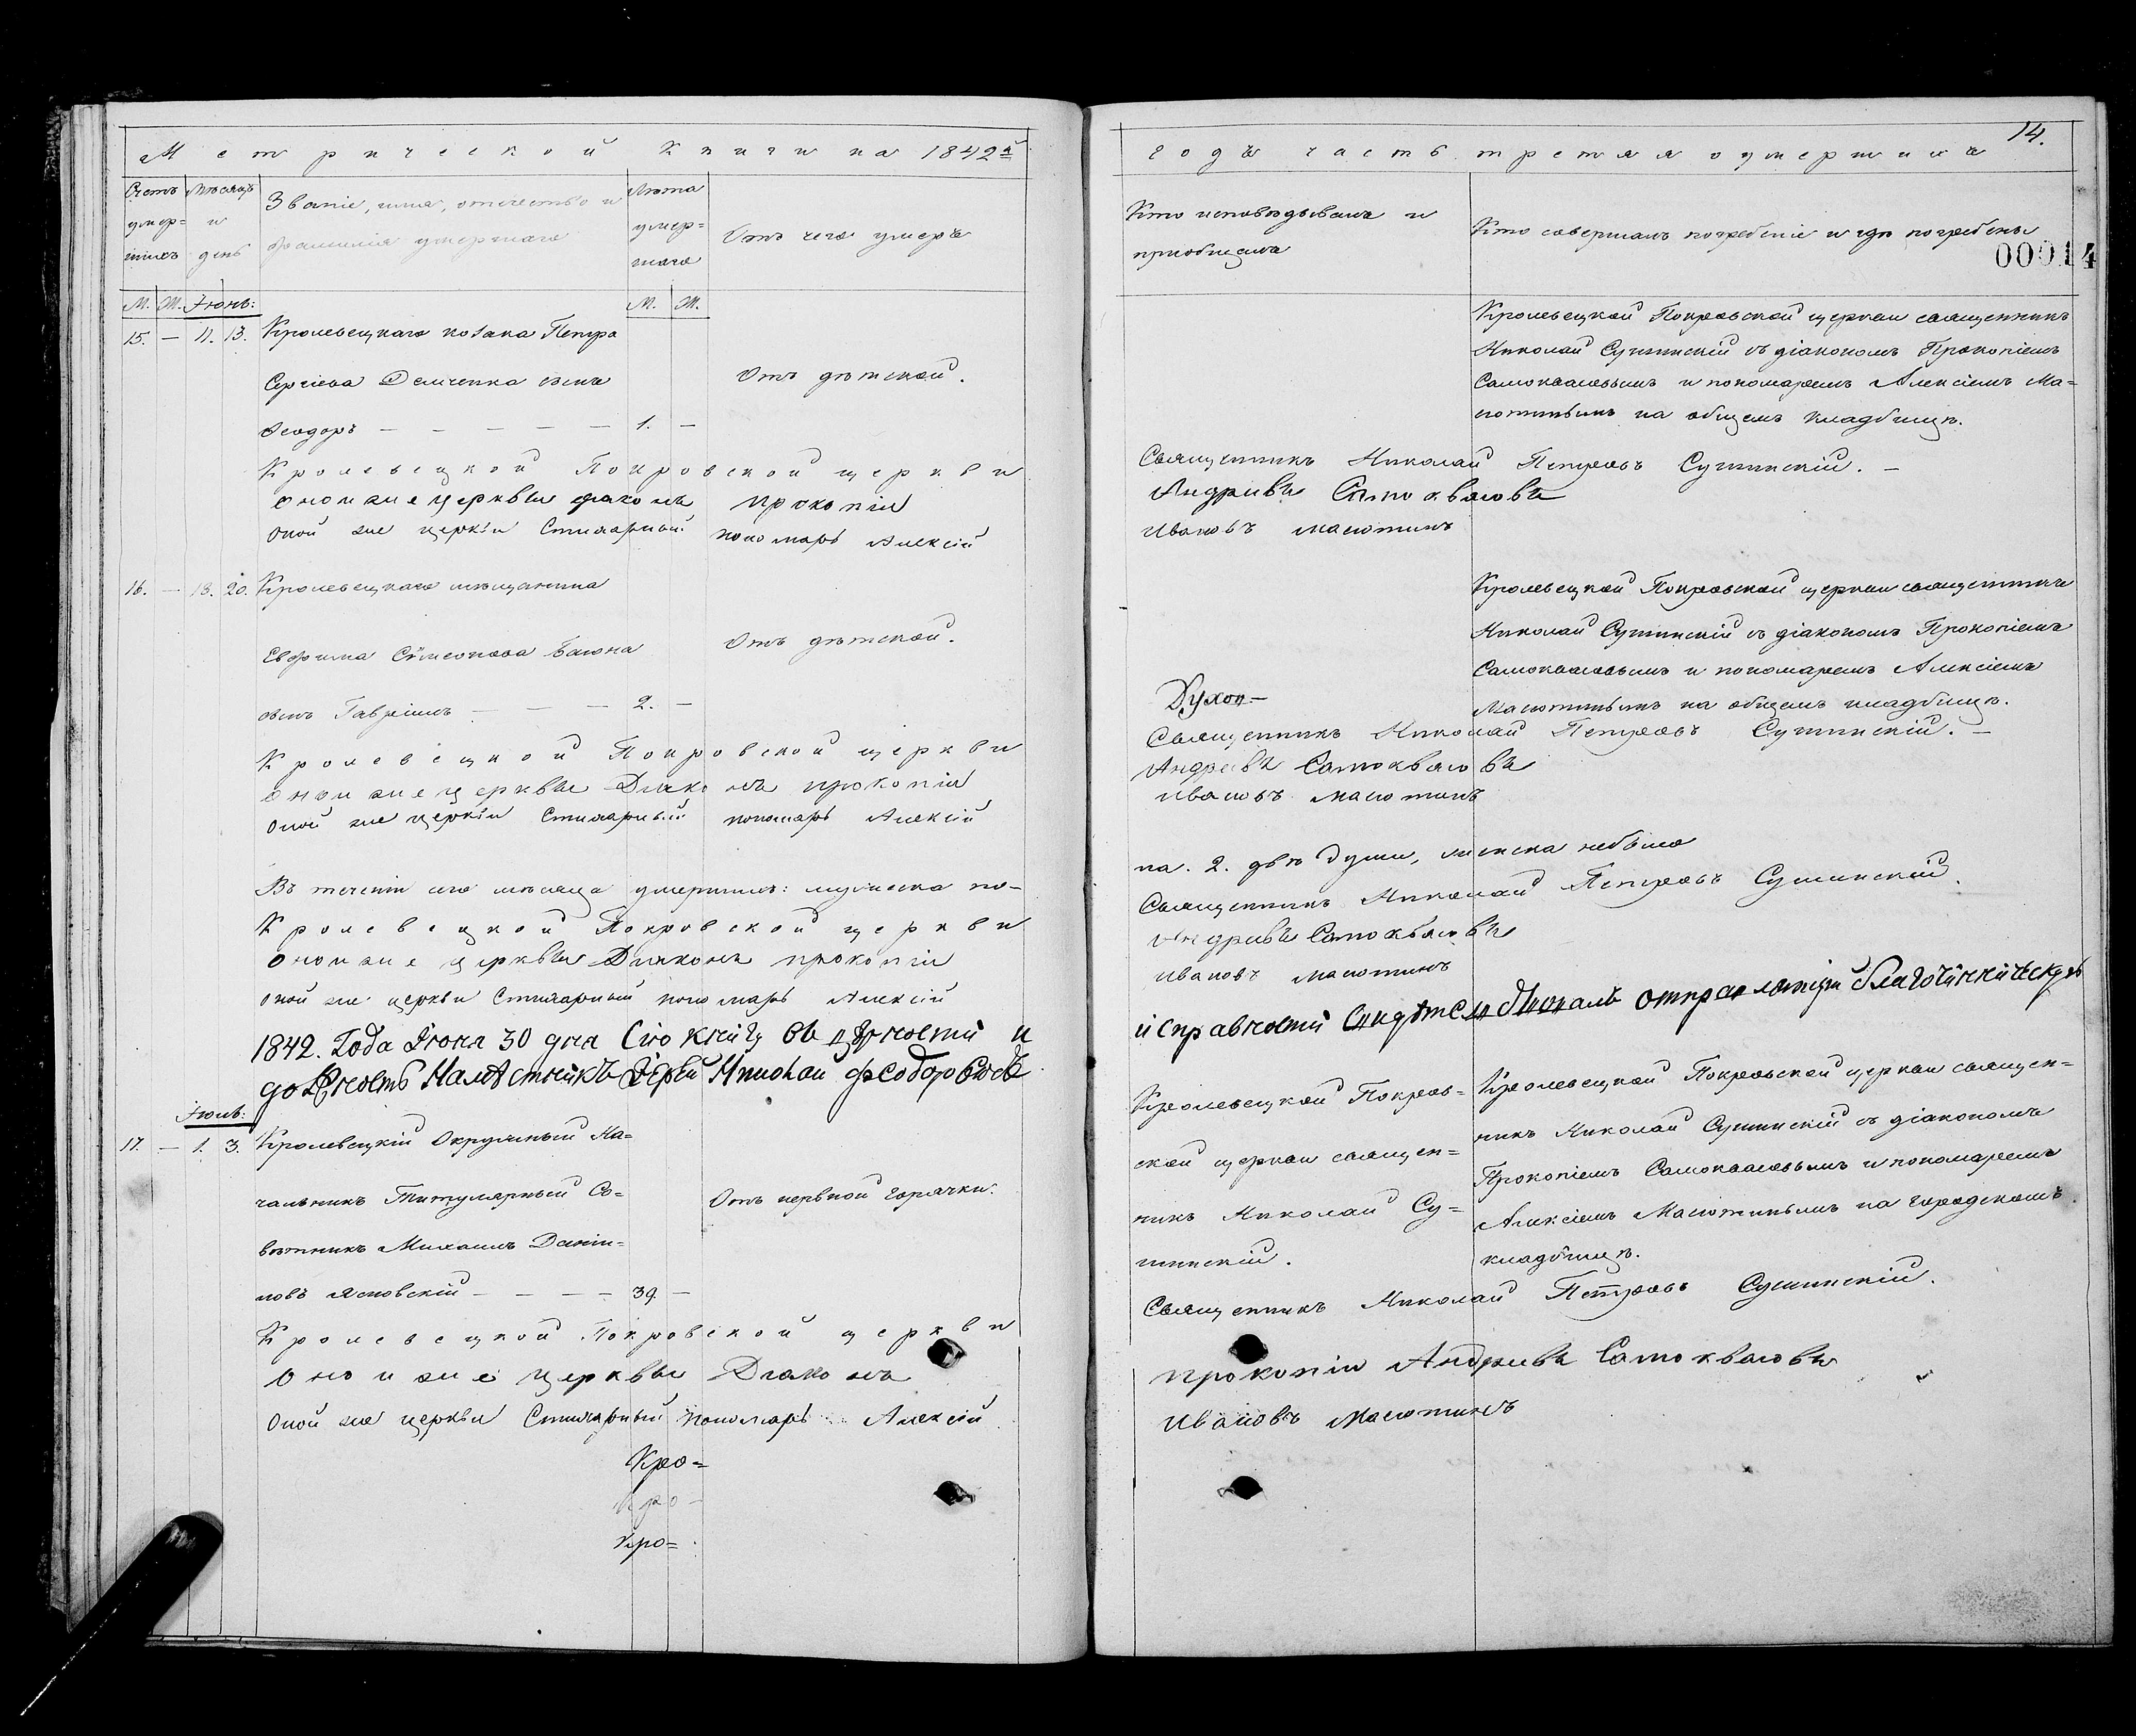 Метрической Книги на 1842й
Счетъ умер-шихъ
Мѣсяцъ и день
Званіе, имя, отчество и фамилія умершаго
Лѣта умер=шаго
Отъ чего умеръ
М. Ж. Іюнь: М. Ж.
15. — 11. 13. Кролевецкаго козака Петра
Сергіева Демченка сынъ
Отъ дѣтской.
Ѳеодоръ — — — — — 1. —
Кролевецкой Покровской церкви
оной же церквы диаконъ прокопій
оной же церкви Стихарный пономарь Алексій
16. — 18. 20. Кролевецкаго мѣщанина
Евфима Симеонова Баюна
Отъ дѣтской.
сынъ Гавріилъ — — — 2. —
Кролевецкой Покровской церкви
оной же церквы Диаконъ прокопій
оной же церкви Стихарный пономарь Алексій
Въ теченіи сего мѣсяца умершихъ: мужеска по-
Кролевецкой Покровской церкви
оной же церквы Диаконъ прокопій
оной же церкви Стихарный пономарь Алексій
1842. Года Іюня 30 дня Сію книгу въ цѣлости и
Намѣстникъ Іерей Николай Федоровъ
Іюль:
17. — 1. 3. Кролевецкій Окружный На=
чальникъ Титулярный Со=
Отъ нервной горячки.
вѣтникъ Михаилъ Даніи=
ловъ Ясновскій — — — — 39. —
Кролевецкой Покровской церкви
Оной же церквы Диаконъ
Оной же церкви Стихарный пономарь Алексій
Кро=
Кро-
Кро=
14.
годъ часть третяя о умершихъ
Кто исповѣдывалъ и пріобщалъ
Кто совершалъ погребеніе и гдѣ погребены
00014
Кролевецкой Покровской церкви священникъ
Николай Сушинскій съ діакономъ Прокопіемъ
Самоквасовымъ и пономаремъ Алексіемъ Ма=
сютинымъ на общемъ кладбищѣ.
Священникъ Николай Петровъ Сушинскій. —
Андриевъ Самоквасовъ
Ивановъ Масютинъ
Кролевецкой Покровской церкви священникъ
Николай Сушинскій съ діакономъ Прокопіемъ
Самоквасовымъ и пономаремъ Алексіемъ
Масютинымъ на общемъ кладбищѣ.
Духов—
Священникъ Николай Петровъ Сушинскій. —
Андреевъ Самоквасовъ
Ивановъ Масютинъ
ла. 2. двѣ души, женска небыло
Священникъ Николай Петровъ Сушинскій.
Андриевъ Самоквасовъ
Ивановъ Масютинъ
и справности
Кролевецкой Покров=
ской церкви священ=
никъ Николай Су=
шинскій.
Кролевецкой Покровской церкви священ=
никъ Николай Сушинскій съ діакономъ
Прокопіемъ Самоквасовымъ и пономаремъ
Алексіемъ Масютинымъ на городскомъ
кладбищѣ.
Священникъ Николай Петровъ Сушинскій.
прокопій Андриевъ Самоквасовъ
Ивановъ Масютинъ